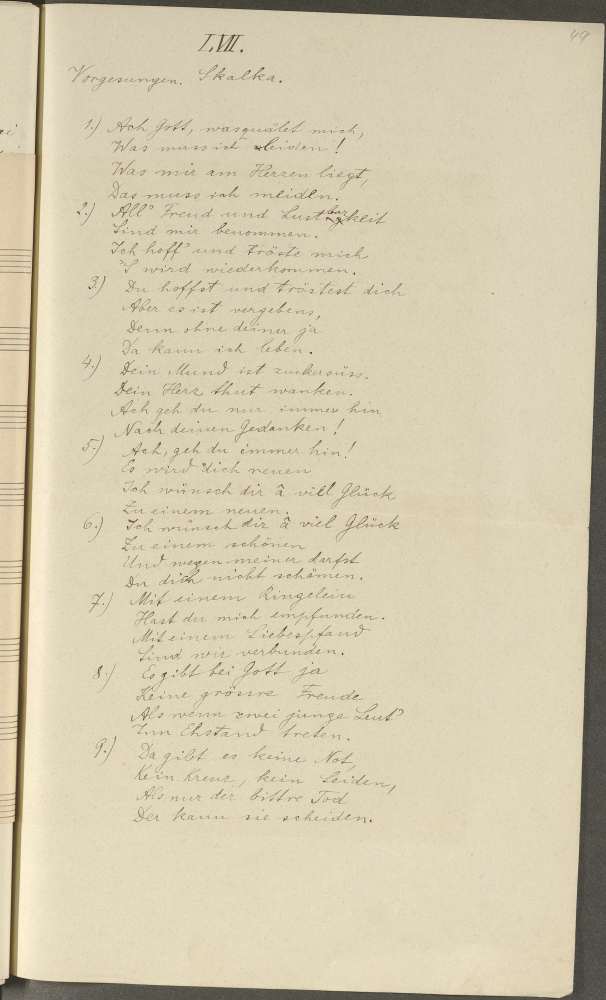 49
LVII.
Vorgesungen. Skalka.
1.) Ach Gott, was quälet mich,
Was muss ich leiden!
Was mir am Herzen liegt,
Das muss ich meiden.
2.) All' Freud und Lustbarkeit
Sind mir benommen.
Ich hoff' und tröste mich
'S wird wiederkommen.
3.) Du hoffst und tröstest dich
Aber es ist vergebens,
Denn ohne deiner ja
Da kann ich leben.
4.) Dein Mund ist zuckersüss.
Dein Herz thut wanken.
Ach geh du nur immer hin
Nach deinen Gedanken!
5.) Ach, geh du immer hin!
Es wird dich reuen
Ich wünsch dir à viel Glück
Zu einem neuen.
6.) Ich wünsch dir à viel Glück
Zu einem schönen
Und wegen meiner darfst
Du dich nicht schämen.
7.) Mit einem Ringelein
Hast du mich empfunden.
Mit einem Liebespfand
Sind wir verbunden.
8.) Es gibt bei Gott ja
Keine grössre Freude
Als wenn zwei junge Leut'
Zum Ehstand treten.
9.) Da gibt es keine Not,
Kein Kreuz, kein Leiden,
Als nur der bittre Tod
Der kann sie scheiden.